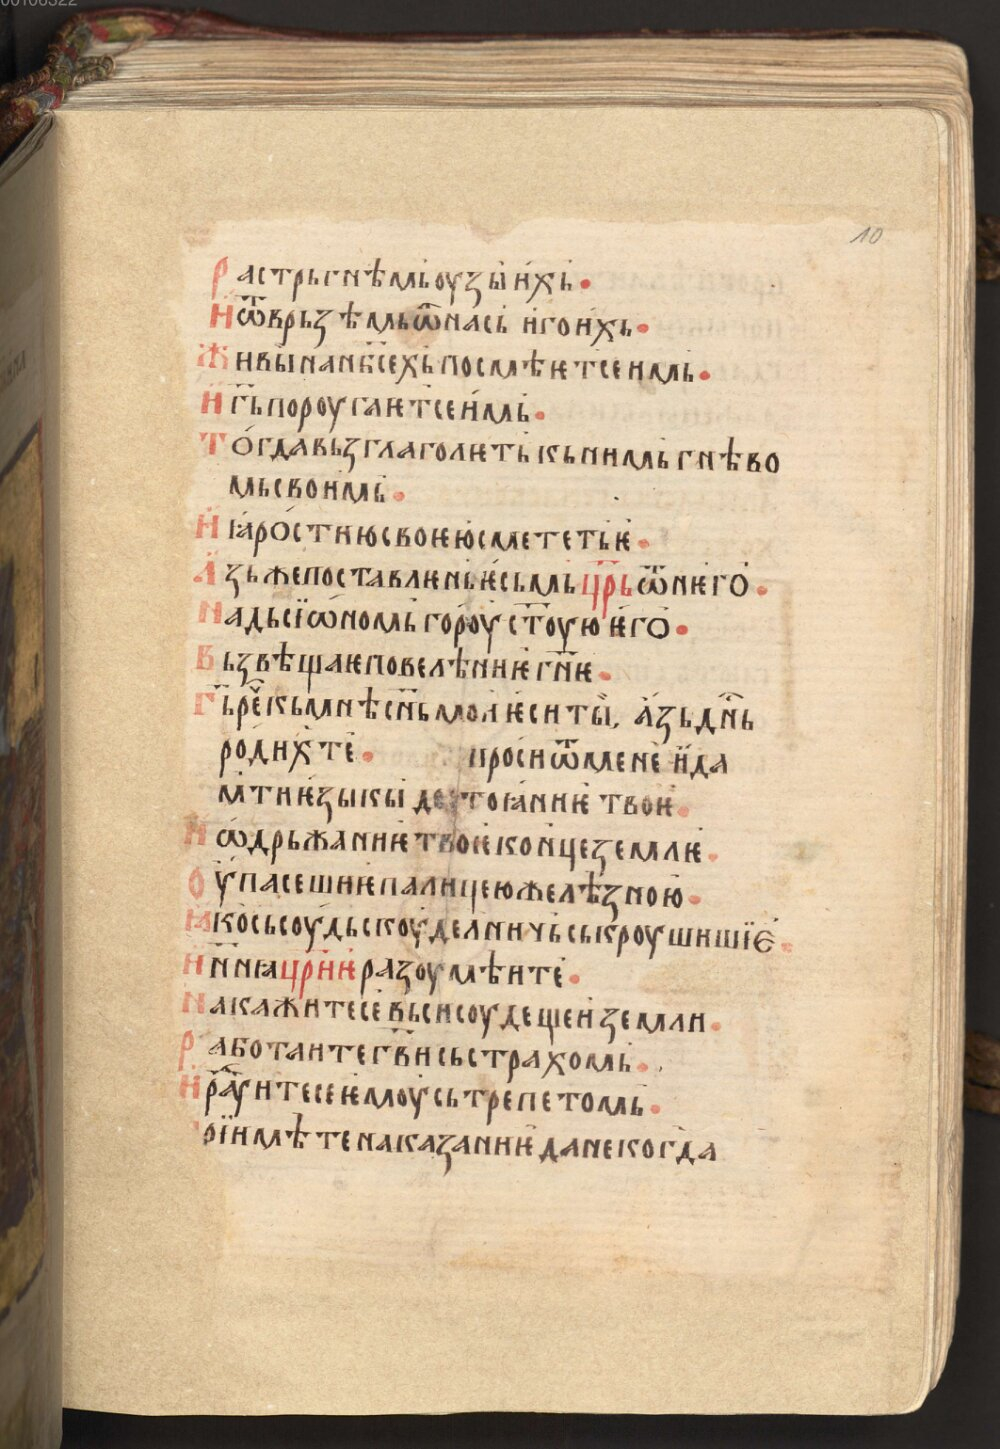 10
Растрьгнѣмь оузы ихь •
И ѿврьзѣмь ѿ нась иго ихь •
Живыи на нб҃сехь посмѣѥтсе имь •
И г҃ь пороугаѥтсе имь •
Тогда вьзглаголѥть кь нимь гнѣво
мь своимь •
И ꙗростию своѥю смететь ѥ •
Азь же поставлѥнь ѥсьмь цр҃ь ѿ нѥго •
Надь сїѡномь гороу ст҃оую ѥго •
Вьзвѣщаѥ повелѣниѥ гн҃ѥ •
Г҃ь реч кь мнѣ сн҃ь мои ѥси ты, азь дн҃ь
родих те • проси ѿ мене и да
м ти ѥзыкы достоꙗниѥ твоѥ •
И ѡдрьжаниѥ твоѥ конце землѥ •
Оупасеши ѥ палицею желѣзною •
Ꙗко сьсоуды скоуделничь ськроушиши їе •
И нн҃ꙗ цр҃иѥ разоумѣите •
Накажитесе вьси соудещеи земли •
Работаите гв҃и сь страхомь •
И раⷣуитесе ѥмоу сь трепетомь •
рїимѣте наказаниѥ да не когда